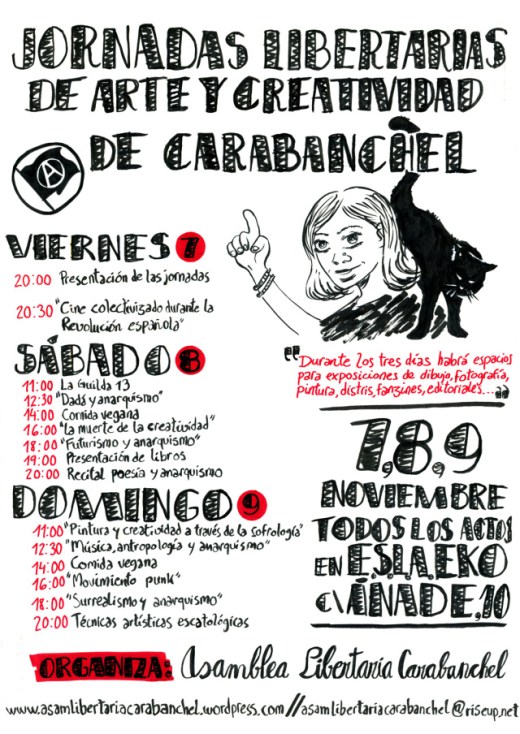 JORNADAS LIBERTARIAS
DE ARTE Y CREATIVIDAD
DE CARABANCHEL
A
VIERNES 7
20:00 Presentación de las jornadas
20:30 "Cine colectivizado durante la
Revolución española"
SÁBADO 8
11:00 La Guilda 13
12:30 "Dadá y anarquismo"
14:00 Comida vegana
16:00 "la muerte de la creatividad"
18:00 "Futurismo y anarquismo"
19:00 Presentación de libros
20:00 Recital poesía y anarquismo
DOMINGO 9
11:00 "Pintura y creatividad a través de la sofrología"
12:30 "Música, antropología y anarquismo"
14:00 Comida vegana
16:00 "Movimiento punk"
18:00 "Surrealismo y anarquismo"
20:00 Técnicas artísticas escatológicas
"Durante los tres días habrá espacios
para exposiciones de dibujo, fotografía,
pintura, distris, fanzines, editoriales..."
7, 8, 9
NOVIEMBRE
TODOS LOS ACTOS
EN E.S.L.A. EKO
C\ ÁNADE, 10
ORGANIZA: Asamblea Libertaria Carabanchel
www.asamlibertariacarabanchel.wordpress.com // asamlibertariacarabanchel@riseup.net